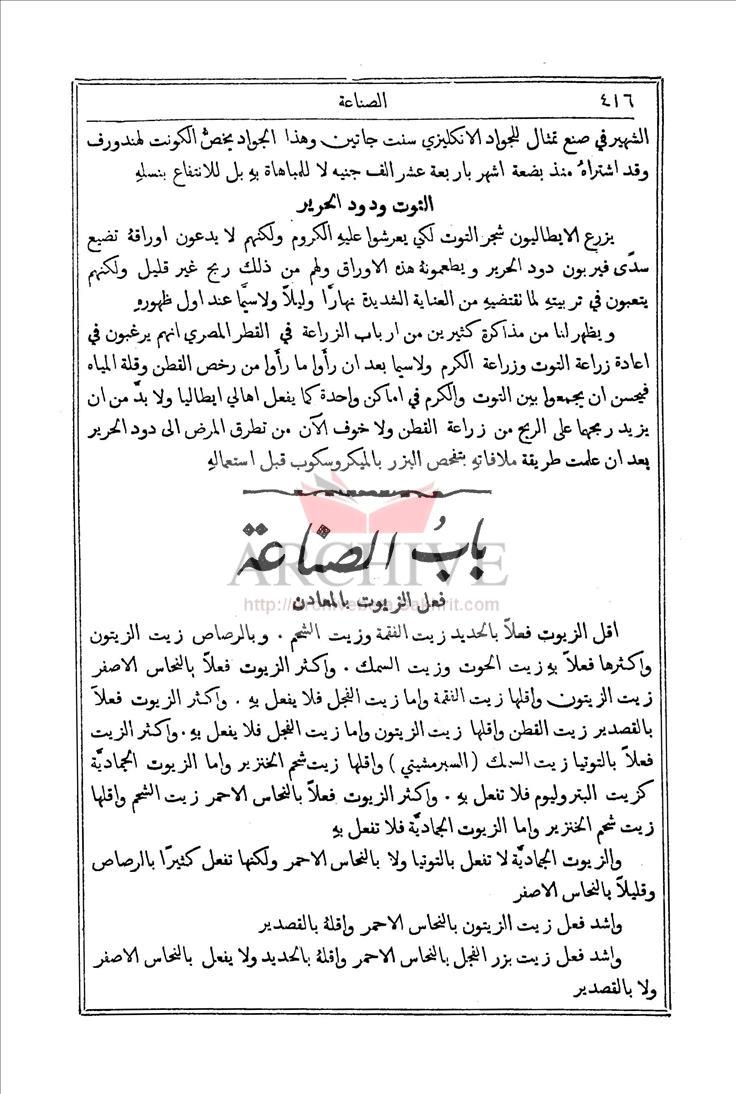 ٤١٦
الصناعة
الشهير في صنع تمثال للجواد الانكليزي سنت جاتين وهذا الجواد يخصُّ الكونت لهندورف
وقد اشتراهُ منذ بضعة اشهر باربعة عشر الف جنيه لا للمباهاة بهِ بل للانتفاع بنسلهِ
التوت ودود الحرير
يزرع الايطاليون شجر التوت لكي يعرشوا عليهِ الكروم ولكنهم لا يدعون اوراقهُ تضيع
سدًى فيربون دود الحرير ويطعمونهُ هذه الاوراق ولهم من ذلك ربح غير قليل ولكنهم
يتعبون في تربيتهِ لما تقتضيهِ من العناية الشديدة نهارًا وليلًا ولاسيَّما عند اول ظهورهِ
ويظهر لنا من مذاكرة كثيرين من ارباب الزراعة في القطر المصري انهم يرغبون في
اعادة زراعة التوت وزراعة الكرم ولاسيما بعد ان رأَوا ما رأَوا من رخص القطن وقلة المياه
فيحسن ان يجمعوا بين التوت والكرم في اماكن واحدة كما يفعل اهالي ايطاليا ولا بدَّ من ان
يزيد ربحها على الربح من زراعة القطن ولا خوف الآن من تطرق المرض الى دود الحرير
بعد ان علمت طريقة ملافاتهِ بتفحص البزر بالميكروسكوب قبل استعمالهِ
بابُ الصناعة
ARCHIVE
فعل الزيوت بالمعادن
اقل الزيوت فعلًا بالحديد زيت الفقمة وزيت الشحم . وبالرصاص زيت الزيتون
واكثرها فعلًا بهِ زيت الحوت وزيت السمك . واكثر الزيوت فعلًا بالنحاس الاصفر
زيت الزيتون واقلها زيت الفقمة واما زيت الفجل فلا يفعل بهِ . واكثر الزيوت فعلًا
بالقصدير زيت القطن واقلها زيت الزيتون واما زيت الفجل فلا يفعل بهِ . واكثر الزيت
فعلًا بالتوتيا زيت السمك (السبرمشيتي) واقلها زيت شحم الخنزير واما الزيوت الجماديَّة
كزيت البتروليوم فلا تفعل بهِ . واكثر الزيوت فعلًا بالنحاس الاحمر زيت الشحم واقلها
زيت شحم الخنزير واما الزيوت الجماديَّة فلا تفعل بهِ
والزيوت الجماديَّة لا تفعل بالتوتيا ولا بالنحاس الاحمر ولكنها تفعل كثيرًا بالرصاص
وقليلًا بالنحاس الاصفر
واشد فعل زيت الزيتون بالنحاس الاحمر واقلهُ بالقصدير
واشد فعل زيت بزر الفجل بالنحاس الاحمر واقلهُ بالحديد ولا يفعل بالنحاس الاصفر
ولا بالقصدير